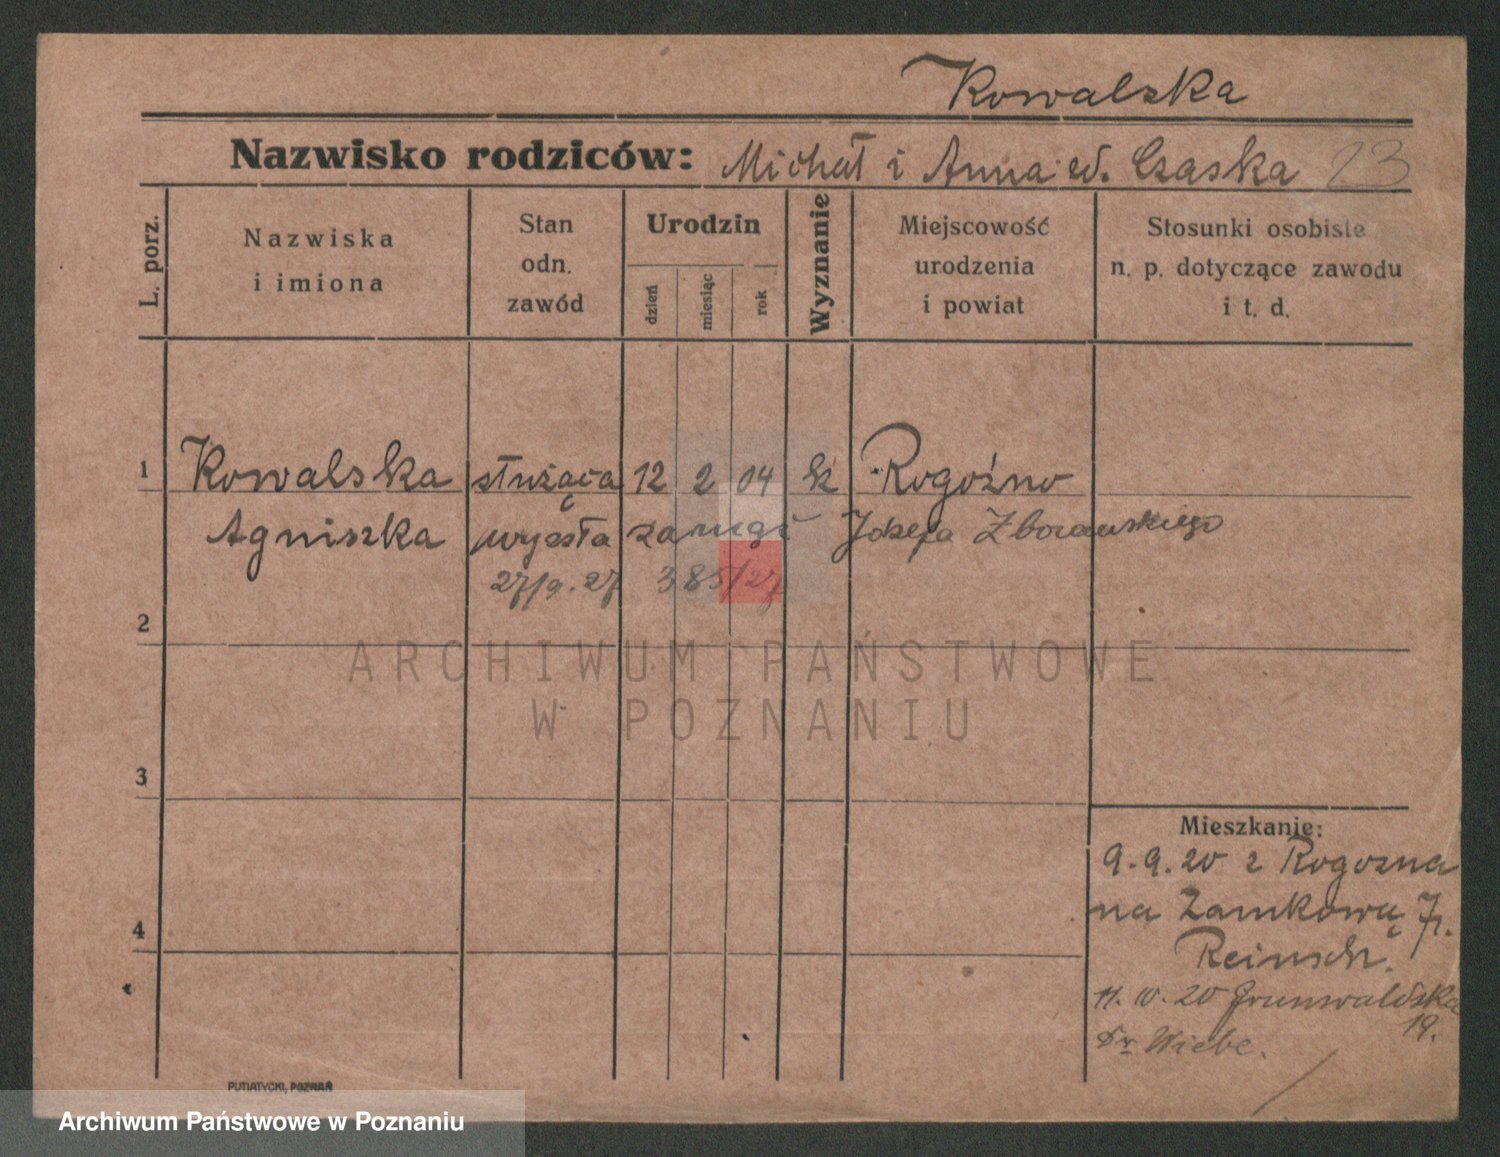 Kowalska
Nazwisko rodziców: Michał i Anna Czaska 23
L. porz.
Nazwiska
i imiona
Stan
odn.
zawód
Urodzin
dzień
miesiąc
rok
Wyznanie
Miejscowość
urodzenia
i powiat
Stosunki osobiste
n. p. dotyczące zawodu
i t. d.
1 Kowalska służąca 12 2 04 k Rogoźno
Agniszka wyszła zamąż Józefa Zborawskiego
27/9. 27 385/27
2
ARCHIWUM PAŃSTWOWE
W POZNANIU
3
Mieszkanie:
9.9.20 z Rogozna
na Zamkową 7
4
Reinsch.
11. 10. 20 Grunwaldska
19.
Dr Wiebe.
PUTIATYCKI, POZNAŃ
Archiwum Państwowe w Poznaniu